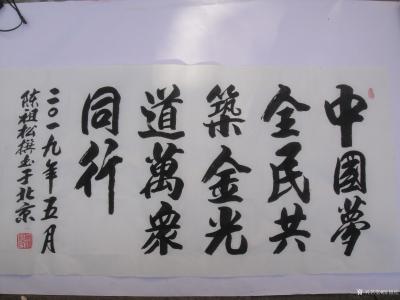 中國夢
全民共
築金光
道萬衆
同行
二〇一九年五月
陈祖松撰书于北京